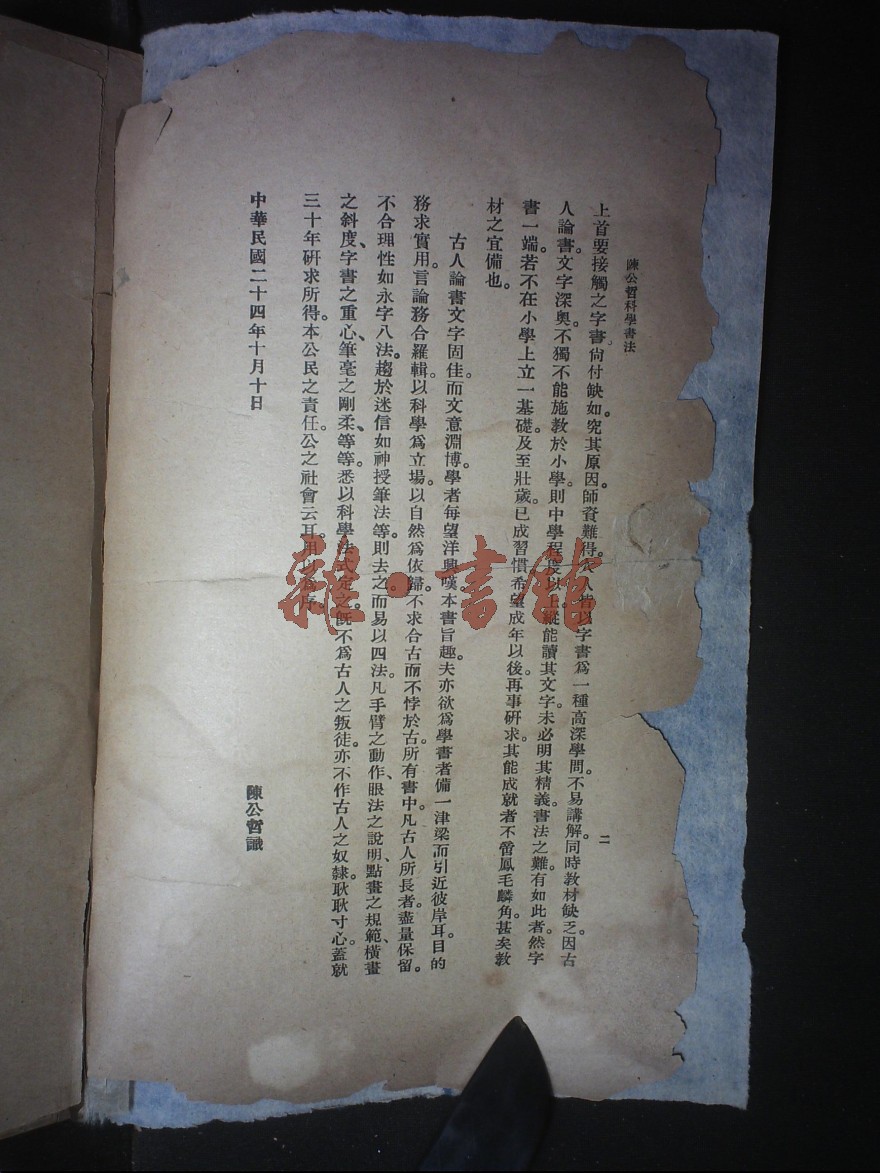 陳公哲科學書法
二
上首要接觸之字書。尙付缺如。究其原因。師資難得。人皆以字書爲一種高深學問。不易講解。同時敎材缺乏。因古
人論書。文字深奧。不獨不能施敎於小學。則中學程度以上。縱能讀其文字。未必明其精義。書法之難。有如此者。然字
書一端。若不在小學上立一基礎。及至壯歲。已成習慣。希望成年以後。再事研求。其能成就者。不啻鳳毛麟角。甚矣敎
材之宜備也。
古人論書。文字固佳。而文意淵博。學者每望洋興嘆。本書旨趣。夫亦欲爲學書者備一津梁。而引近彼岸耳。目的
務求實用。言論務合羅輯。以科學爲立場。以自然爲依歸。不求合古。而不悖於古。所有書中。凡古人所長者。盡量保留。
不合理性如永字八法。趨於迷信如神授筆法等。則去之。而易以四法。凡手臂之動作、眼法之說明、點畫之規範、橫畫
之斜度、字書之重心、筆毫之剛柔、等等。悉以科學法式定之。旣不爲古人之叛徒。亦不作古人之奴隸。耿耿寸心。蓋就
三十年研求所得。本公民之責任。公之社會云耳。用以爲序。
中華民國二十四年十月十日
陳公哲識
雜·書館